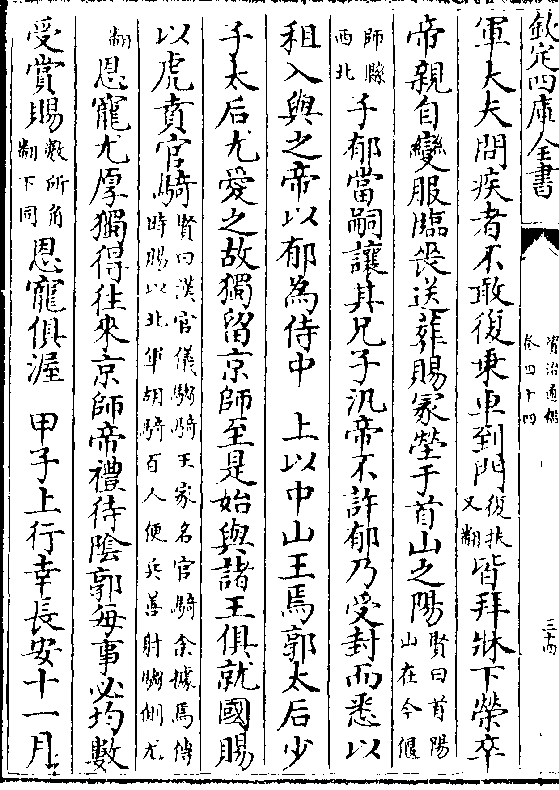 欽定四庫全書
資治通鑑
卷四十四
三十四
軍大夫問疾者不敢復乗車到門復扶又翻皆拜牀下榮卒
帝親自變服臨喪送葬賜冡塋于首山之陽賢曰首陽山在今偃
師縣西北子郁當嗣讓其兄子汎帝不許郁乃受封而悉以
租入與之帝以郁為侍中 上以中山王焉郭太后少
子太后尤愛之故獨留京師至是始與諸王俱就國賜
以虎賁官騎賢曰漢官儀騶騎王家名官騎余據焉傳時賜以北軍胡騎百人便兵善射騶側尤
翻恩寵尤厚獨得往來京師帝禮待隂郭每事必均數
受賞賜數所角翻下同恩寵俱渥 甲子上行幸長安十一月